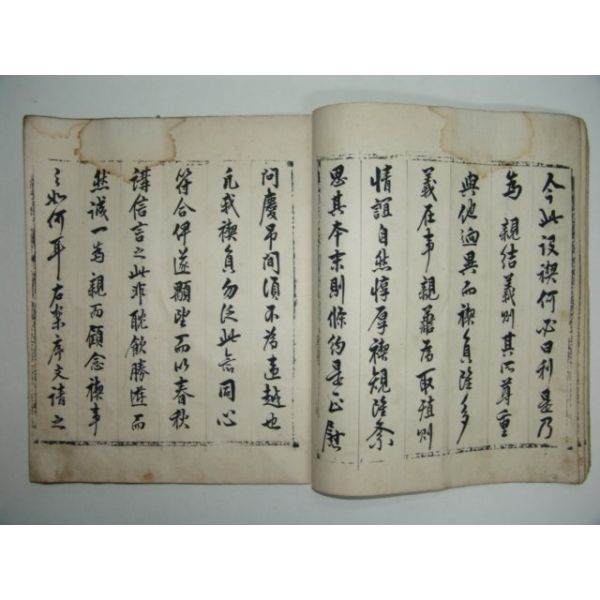 今此設禊何必曰利是乃
為 親結義則其所尊重
與他逈異而禊員隆多
義在事 親蓄為取殖則
情誼自然惇厚禊規隆条
思其本末則條約是正慰
问慶吊间須不為違越也
凡我禊員勿泛此言同心
符合伊遂顒望而以春秋
講信言之此非耽飲勝遊而
然誠一為 親而顧念禊事
之如何耳右案序文請之